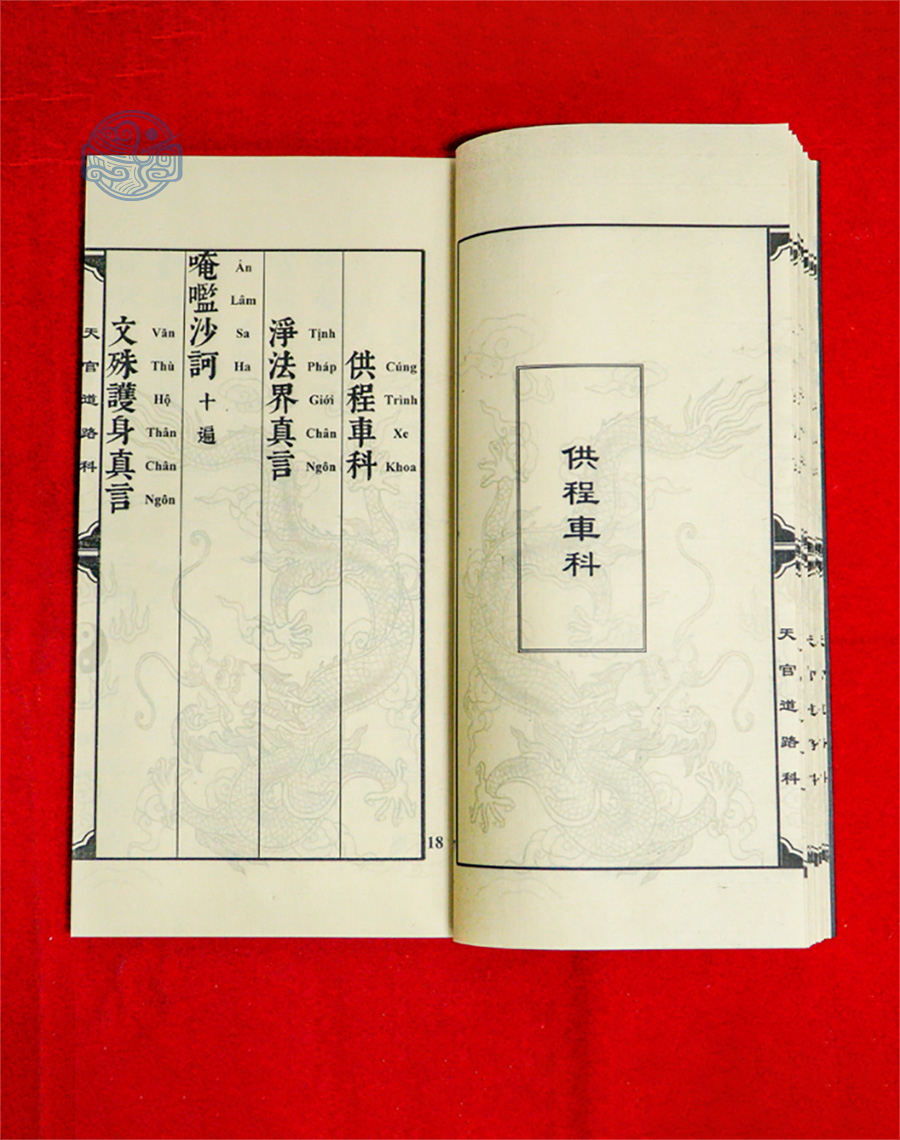 供程車科
天官道路科
供程車科
Cúng Trình Xe Khoa
淨法界真言
Tịnh Pháp Giới Chân Ngôn
唵㘕沙訶 十遍
Án Lâm Sa Ha
文殊護身真言
Văn Thù Hộ Thân Chân Ngôn
天官道路科
18